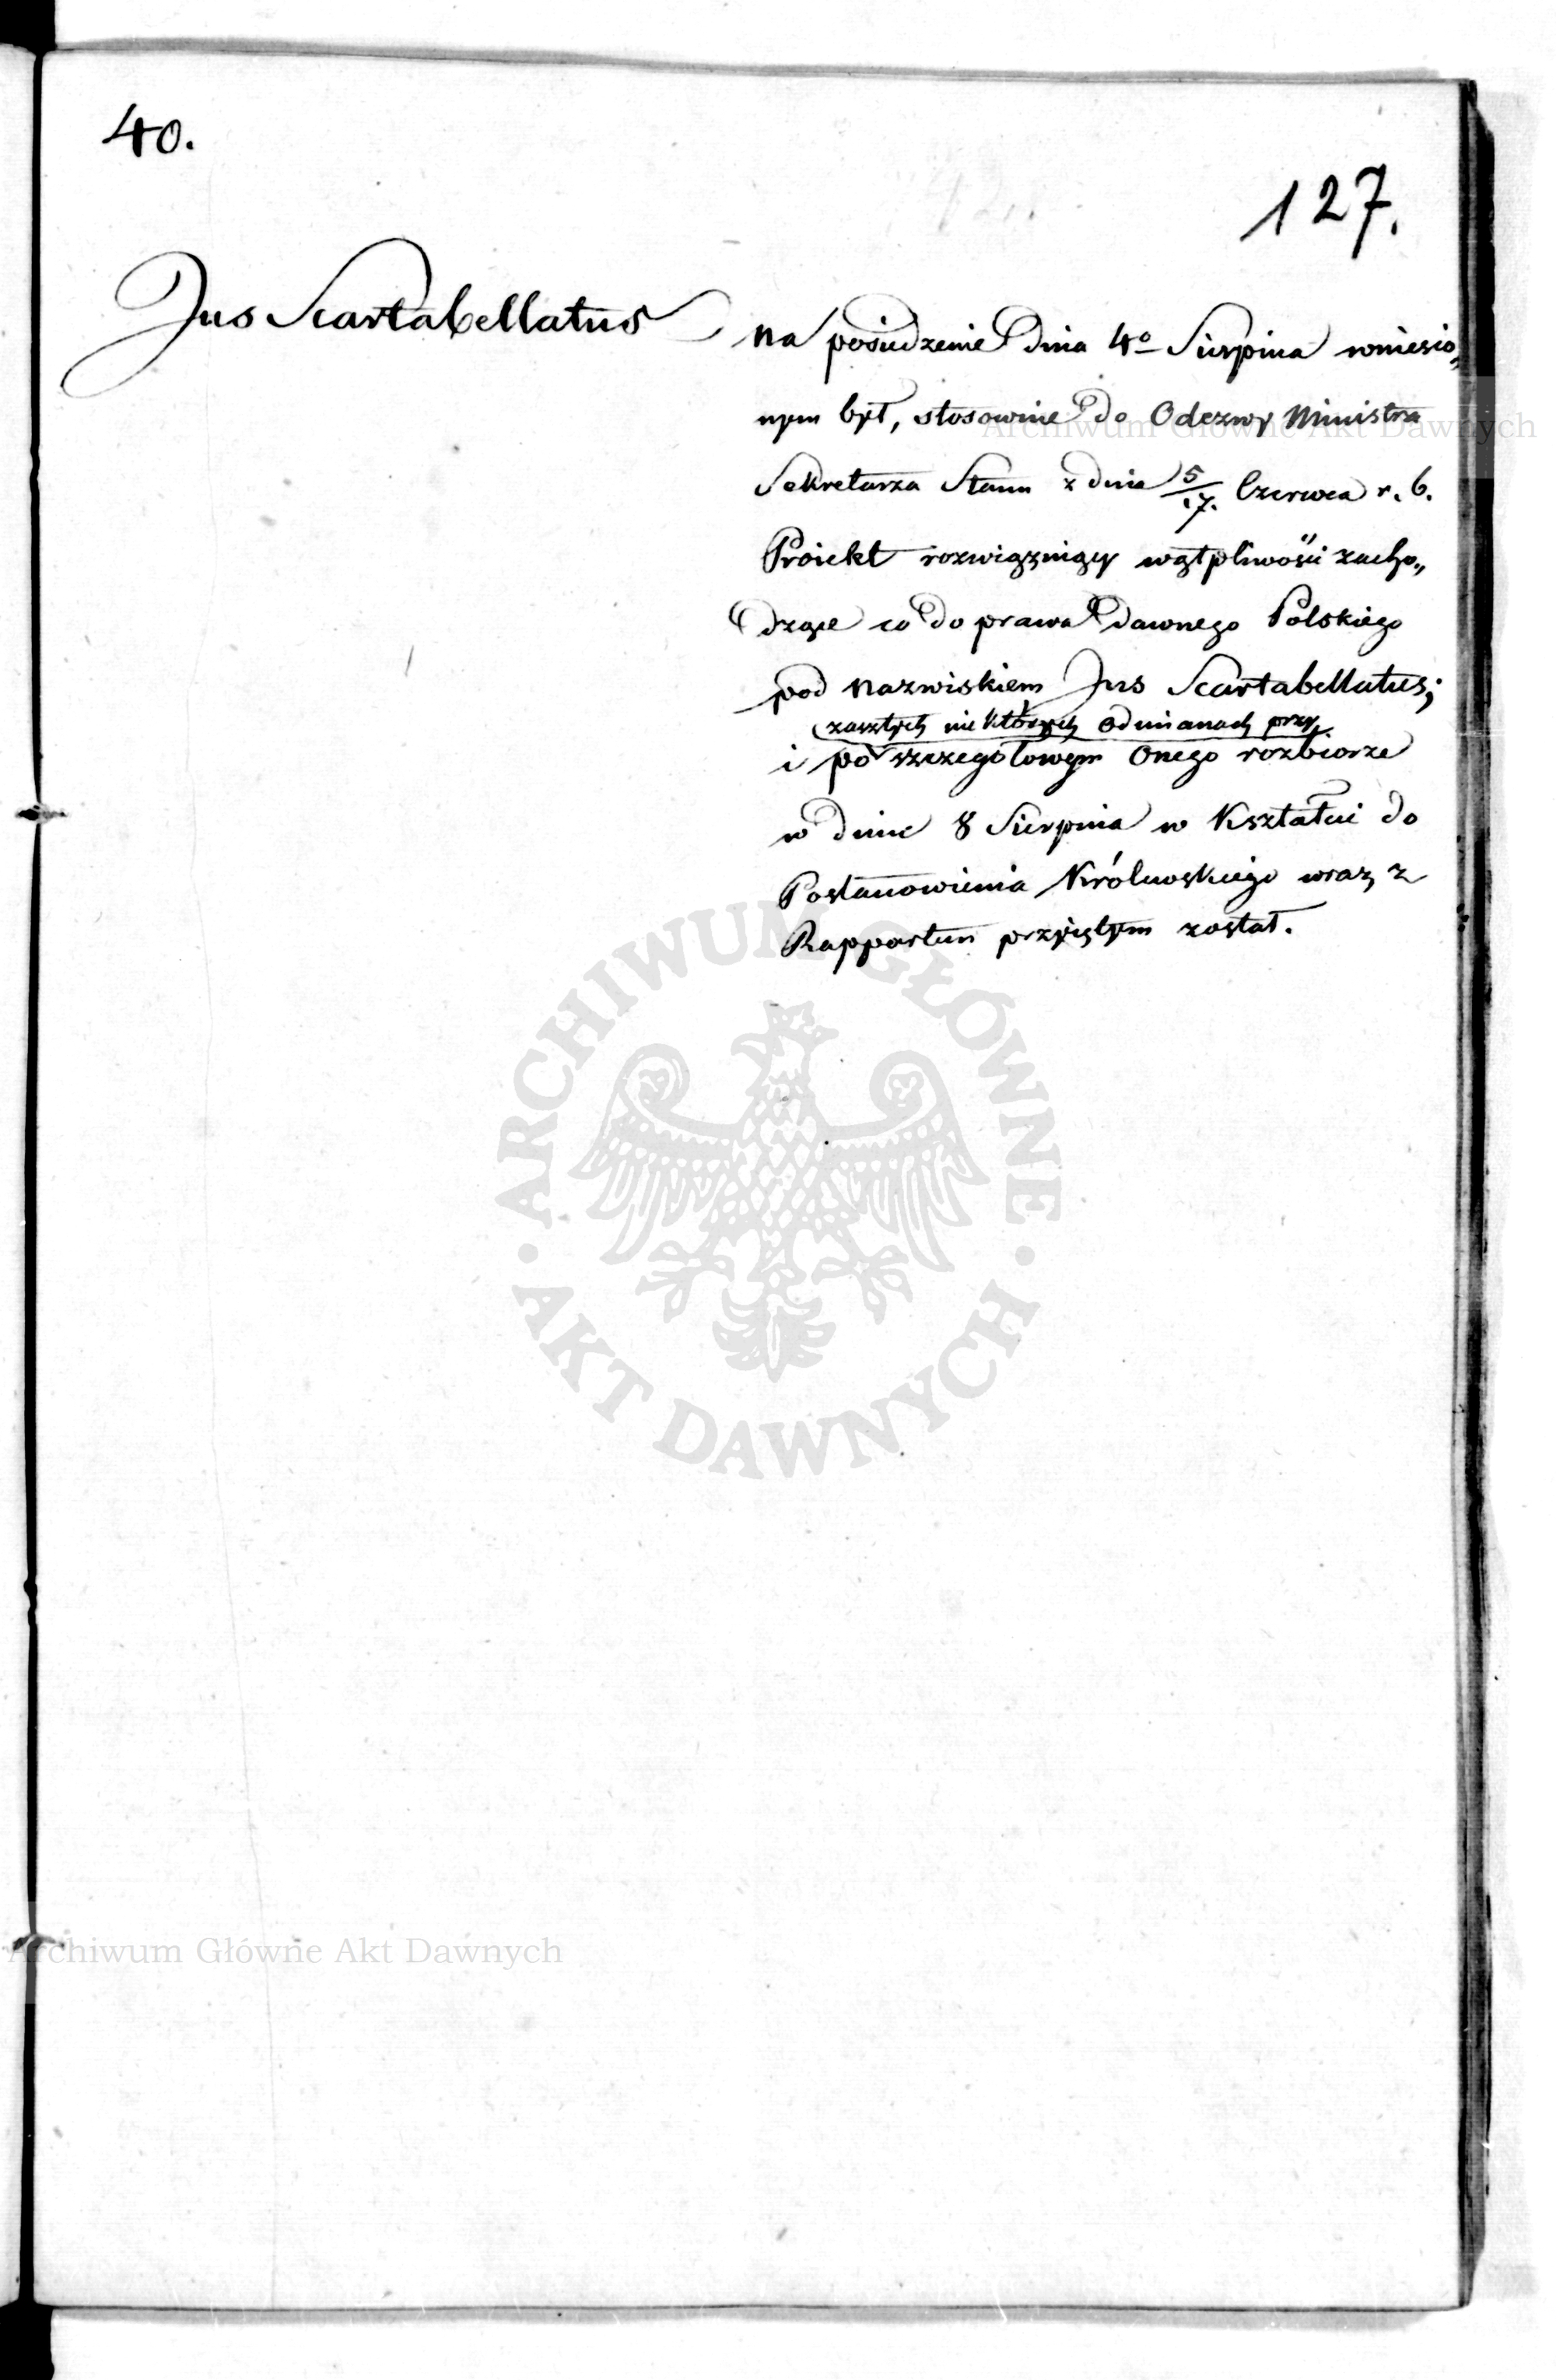 40.
127.
Jus Scartabellatus
Na posiedzenie dnia 4º Sierpnia wniesio„
nym był, stosownie do Odezwy Ministra
Sekretarza Stanu z dnia 5/17. Czerwca r. b.
Proiekt rozwiązuiący wątpliwości zacho„
dzące co do prawa dawnego Polskiego
pod nazwiskiem Jus Scartabellatus;
zaszłych niektórych odmianach przy
i po szczegołowym onego rozbiorze
w dniu 8 Sierpnia w Kształcie do
Postanowienia Królewskiego wraz z
Rapportem przyiętym został.
ARCHIWUM GŁÓWNE
AKT DAWNYCH
Archiwum Główne Akt Dawnych
Archiwum Główne Akt Dawnych